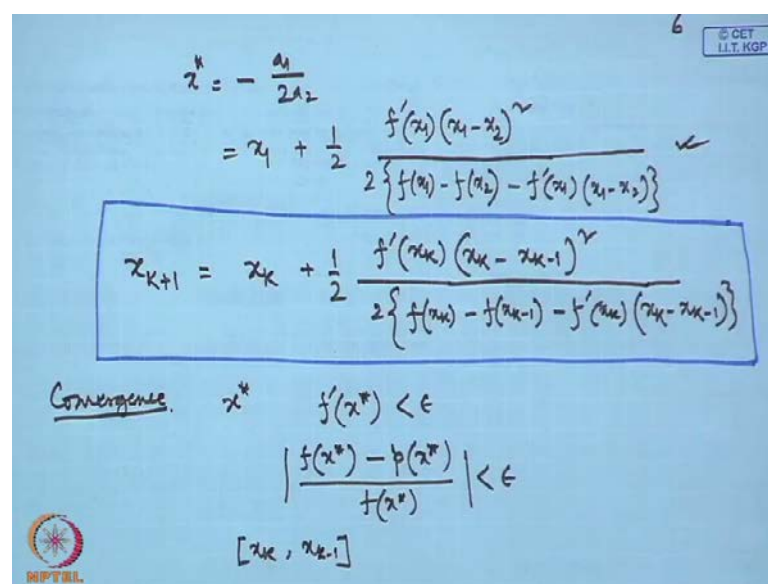 6
© CET
I.I.T. KGP
x* = - a₁ / 2a₂
= x₁ + 1/2 f'(x₁)(x₁-x₂)² / 2{f(x₁) - f(x₂) - f'(x₁)(x₁-x₂)}
x_{K+1} = x_K + 1/2 f'(x_K)(x_K - x_{K-1})² / 2{f(x_K) - f(x_{K-1}) - f'(x_K)(x_K - x_{K-1})}
Convergence. x* f'(x*) < ϵ
| f(x*) - p(x*) / f(x*) | < ϵ
[x_K, x_{K-1}]
NPTEL